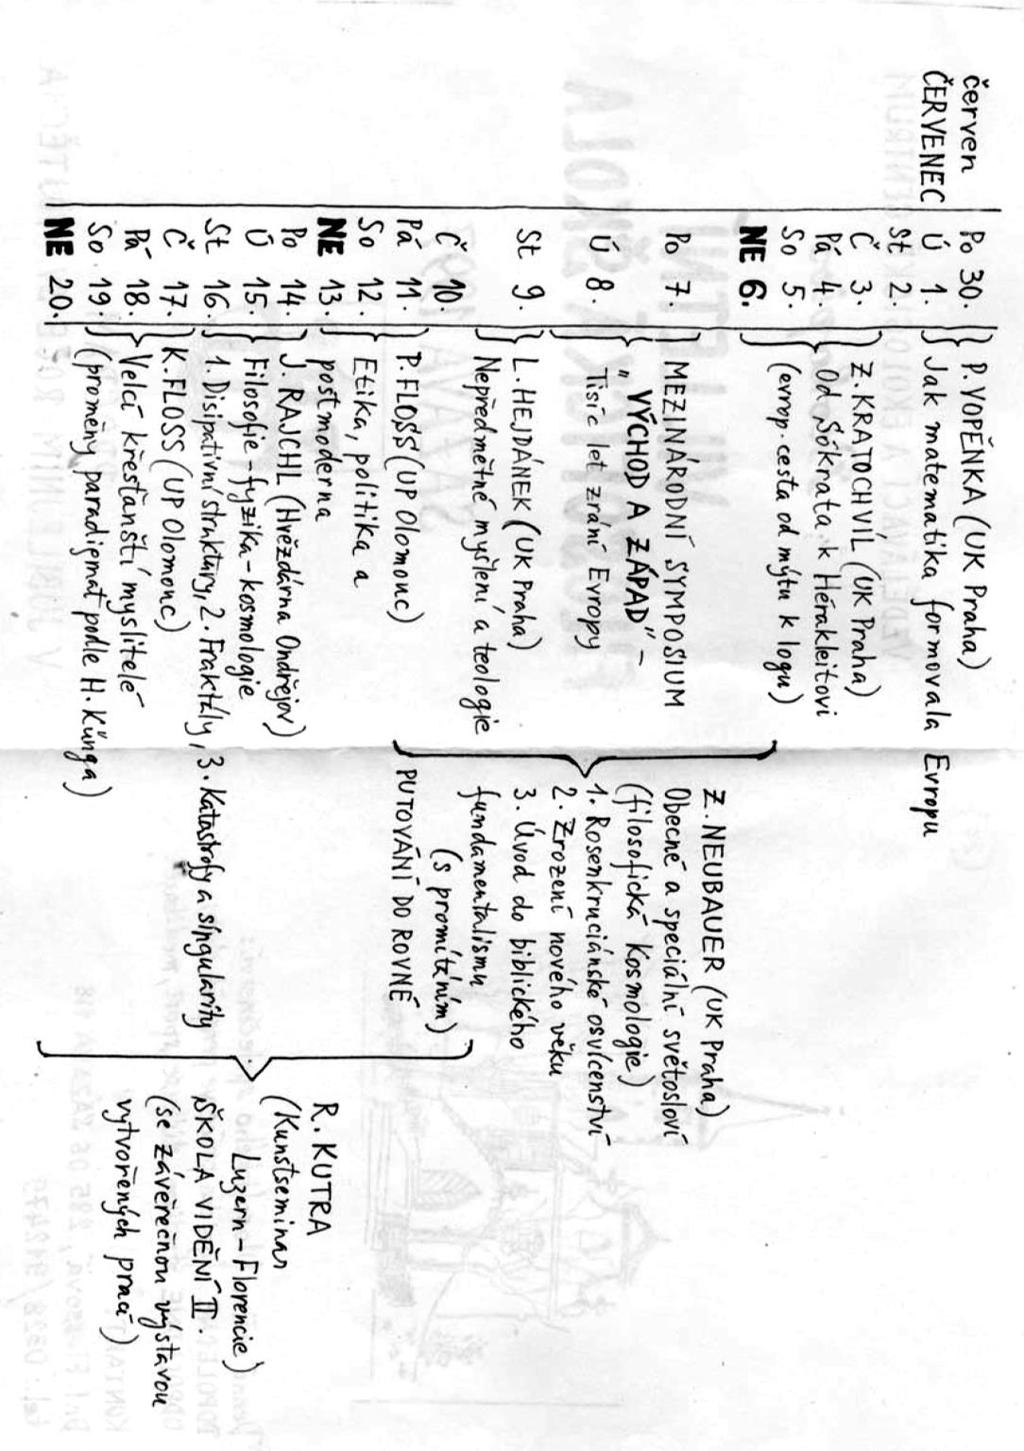 červen
ČERVENEC
Po 30.
Ú 1.
St 2.
Č 3.
Pá 4.
So 5.
NE 6.
Po 7.
Ú 8.
St 9.
Č 10.
Pá 11.
So 12.
NE 13.
Po 14.
Ú 15.
St 16.
Č 17.
Pá 18.
So 19.
NE 20.
P. VOPĚNKA (UK Praha)
Jak matematika formovala Evropu
Z. KRATOCHVÍL (UK Praha)
Od Sókrata k Hérakleitovi
(evrop. cesta od mýtu k logu)
MEZINÁRODNÍ SYMPOSIUM
"VÝCHOD A ZÁPAD" –
Tisíc let zrání Evropy
L. HEJDÁNEK (UK Praha)
Nepředmětné myšlení a teologie
P. FLOSS (UP Olomouc)
Etika, politika a
postmoderna
J. RAJCHL (Hvězdárna Ondřejov)
Filosofie – fyzika – kosmologie
1. Disipativní struktury, 2. Fraktály, 3. Katastrofy a singularity
K. FLOSS (UP Olomouc)
Velcí křesťanští myslitelé
(proměny paradigmat podle H. Künga)
Z. NEUBAUER (UK Praha)
Obecné a speciální světosloví
(filosofická kosmologie)
1. Rosenkruciánské osvícenství
2. Zrození nového věku
3. Úvod do biblického
fundamentalismu
(s promítáním)
PUTOVÁNÍ DO ROVNÉ
R. KUTRA
(Kunstseminar
Luzern – Florencie)
ŠKOLA VIDĚNÍ II.
(se závěrečnou výstavou
vytvořených prací)